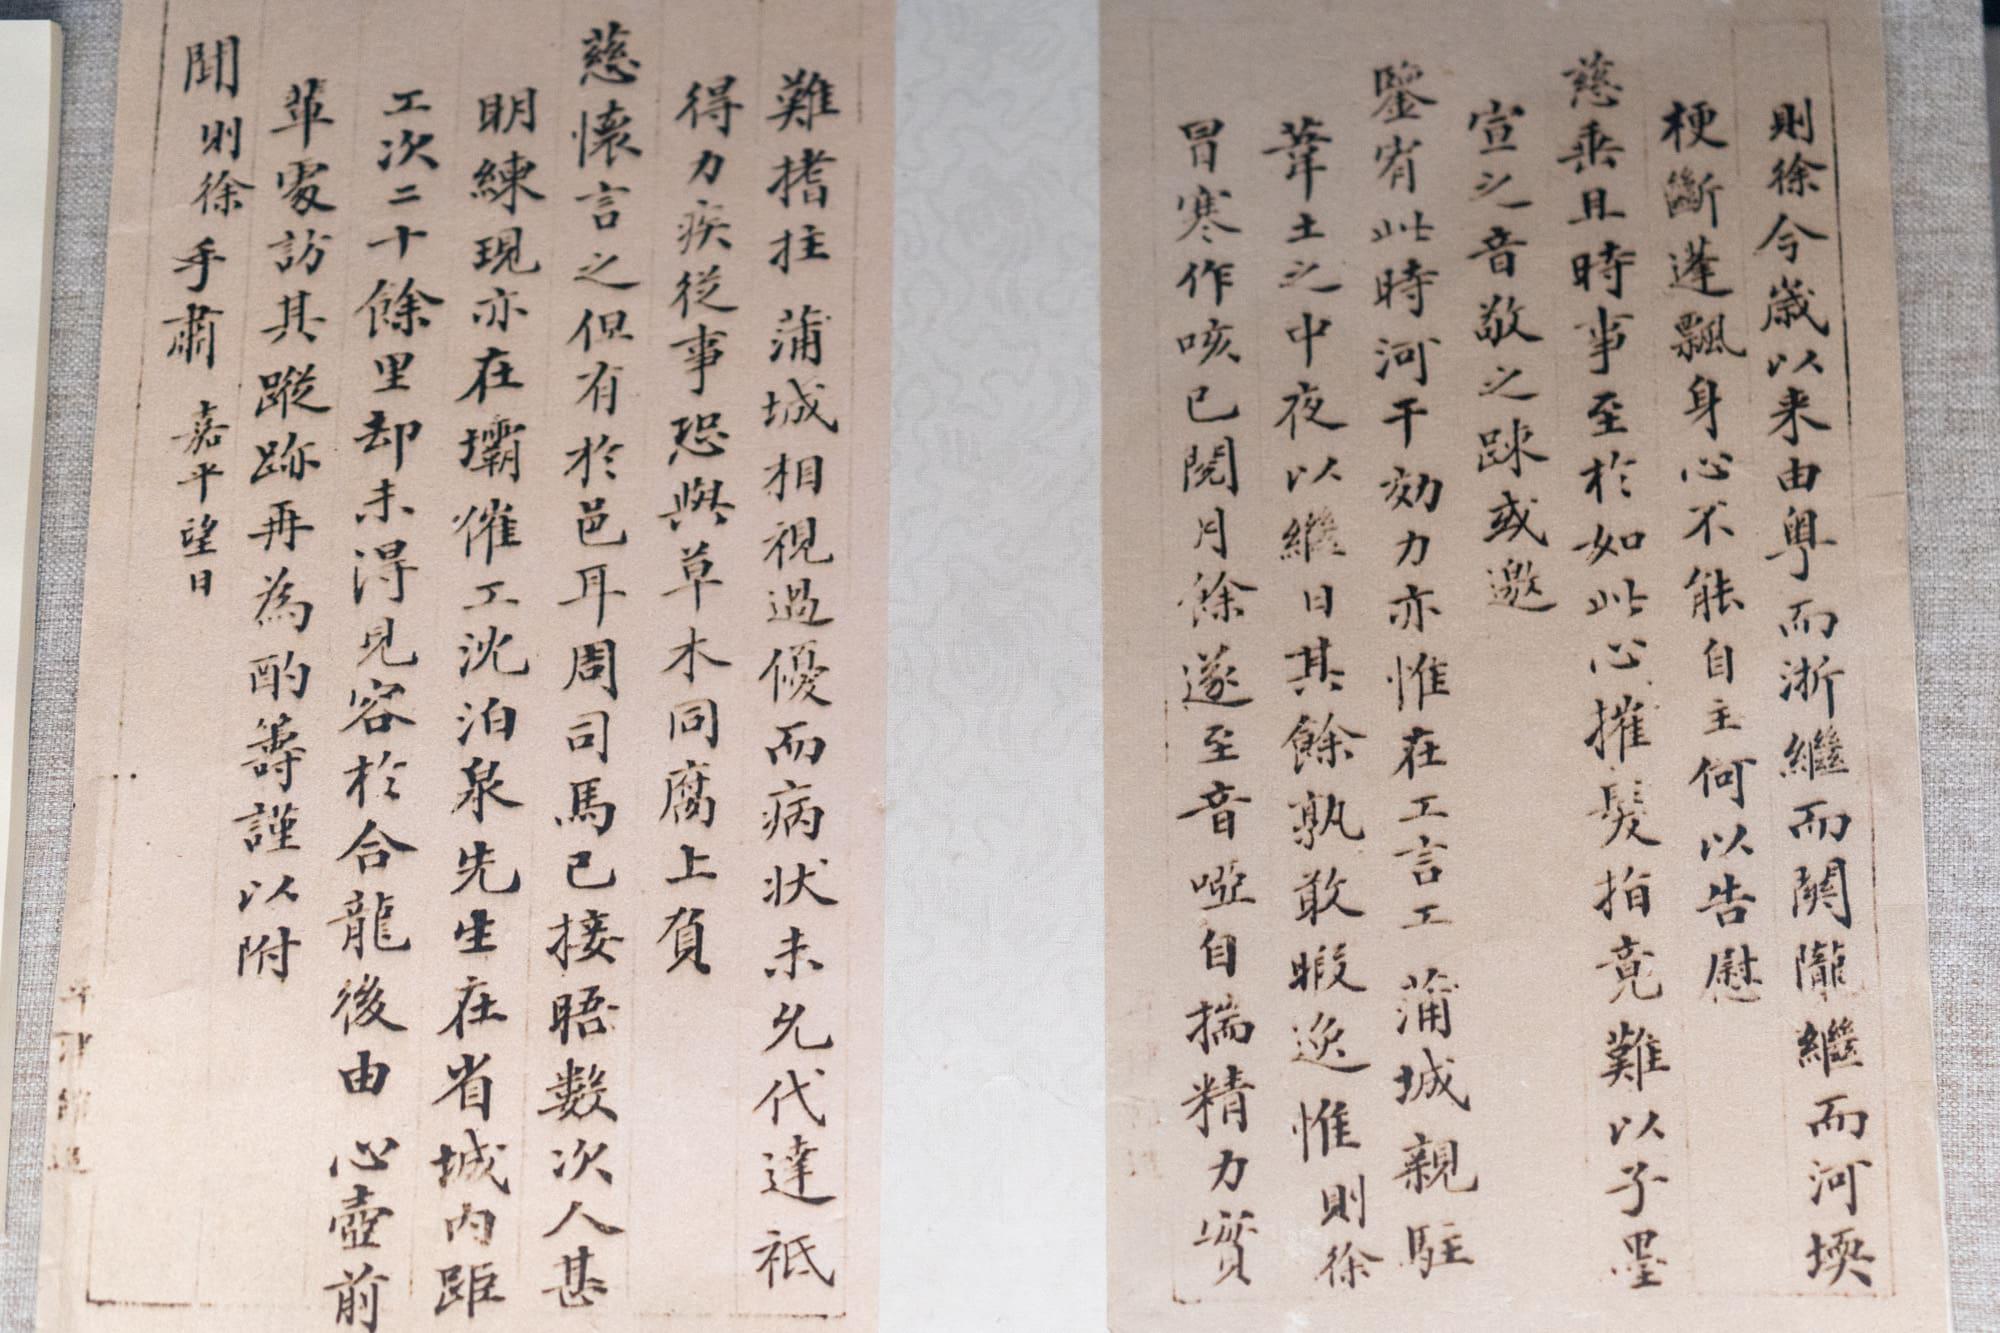 則徐今歲以来由粤而浙繼而關隴繼而河堧
梗斷蓬飄身心不能自主何以告慰
慈垂且時事至於如此心摧髮指竟難以子墨
宣之音敬之踈或邀
鑒宥此時河干効力亦惟在工言工蒲城親駐
葦土之中夜以繼日其餘孰敢暇逸惟則徐
冒寒作咳已閱月餘遂至音啞自揣精力實
難搘拄蒲城相視過優而病状未允代達祗
得力疾從事恐與草木同腐上負
慈懷言之但有於邑耳周司馬已接晤數次人甚
明練現亦在壩催工沈泊泉先生在省城内距
工次二十餘里却未得見容於合龍後由心壺前
輩處訪其蹤跡再為酌籌謹以附
聞則徐手肅嘉平望日